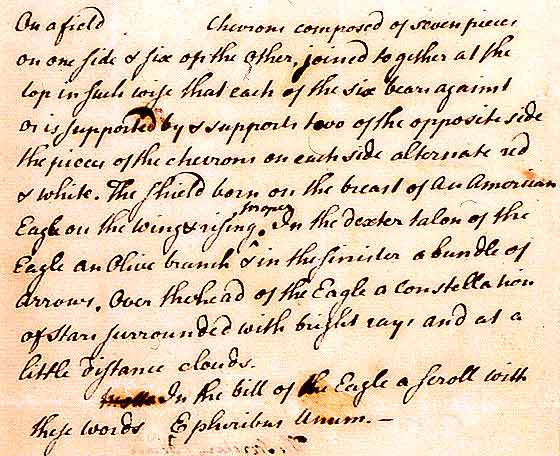 On a field Chevrons composed of seven pieces
on one side & six on the other, joined together at the
top in such wise that each of the six bears against
or is supported by & supports two of the opposite side
the pieces of the chevrons on each side alternate red
& white. The shield born on the breast of An American
Eagle on the wing & rising proper. In the dexter talon of the
Eagle an Olive branch & in the sinister a bundle of
arrows. Over the head of the Eagle a constellation
of stars surrounded with bright rays and at a
little distance clouds.
In the bill of the Eagle a scroll with
these words E pluribus Unum. —